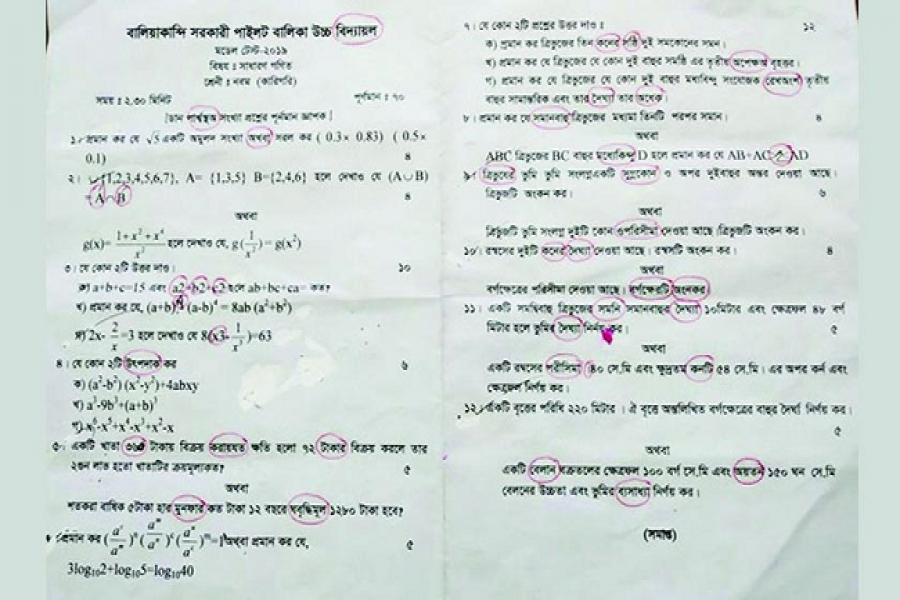 বালিয়াকান্দি সরকারী পাইলট বালিকা উচ্চ বিদ্যায়ল
মডেল টেস্ট-২০১৯
বিষয় ঃ সাধারণ গণিত
শ্রেনী ঃ নবম (কারিগরি)
সময় ঃ ২.৩০ মিনিট পূর্নমান ঃ ৭০
[ডান পার্শ্বস্থত সংখ্যা প্রশ্নের পূর্নমান জ্ঞাপক]
১। প্রমান কর যে √5 একটি অমূলন সংখ্যা অথবা সরল কর ( 0.3× 0.83) ( 0.5×
0.1) ৪
২। {1,2,3,4,5,6,7}, A= {1,3,5} B={2,4,6} হলে দেখাও যে (A∪B)
= A∩B ৪
অথবা
g(x)= (1+x²+x⁴)/x² হলে দেখাও যে, g(1/x²) = g(x²)
৩। যে কোন ২টি উত্তর দাও। ১০
ক) a+b+c=15 এবং a2+b2+c2 হলে ab+bc+ca= কত?
খ) প্রমান কর যে, (a+b)⁴ (a-b)⁴ = 8ab (a²+b²)
গ) 2x- 2/x =3 হলে দেখাও যে 8(x3- 1/x³)=63
৪। যে কোন ২টি উৎপদাক কর ৬
ক) (a²-b²) (x²-y²)+4abxy
খ) a³-9b³+(a+b)³
গ) x⁶-x⁵+x⁴-x³+x²-x
৫। একটি খাতা টাকায় বিক্রয় করায়যত ক্ষতি হলো ৭২ টাকার বিক্রয় করলে তার
২গুন লাভ হতো খাতাটির ক্রয়মূল্যকত? ৫
অথবা
শতকরা বার্ষিক ৫টাকা হার মুনফার কত টাকা ১২ বছরে সবৃদ্ধিমূল ১২৮০ টাকা হবে?
প্রমান কর অথবা প্রমান কর যে, ৫
3log₁₀2+log₁₀5=log₁₀40
৭। যে কোন ২টি প্রশ্নের উত্তর দাও ঃ ১২
ক) প্রমান কর ত্রিভুজের তিন কনের সষ্ঠি দুই সমকোনের সমন।
খ) প্রমান কর যে ত্রিভুজের যে কোন দুই বাহুর সমষ্ঠি এর তৃতীয় অপেক্ষঅ বৃহত্তর।
গ) প্রমান কর যে ত্রিভুজের যে কোন দুই বাহুর মধ্যবিন্দু সংযোজক রেখঅংশ তৃতীয়
বাহুর সামান্তরিক এবং তার দৈঘ্যা তার অধেক।
৮। প্রমান কর যে সমানবাহু ত্রিভুজের মধ্যমা তিনটি পরপর সমান। ৪
অথবা
ABC ত্রিভুজের BC বাহুর মধ্যেকিন্দু D হলে প্রমান কর যে AB+AC AD
৯। ত্রিভুযের ভুমি ভুমি সংলগ্নএকটি সুলকোন ও অপর দুইবাহুর অন্তর দেওয়া আছে।
ত্রিভুজটি অংকন কর। ৬
অথবা
ত্রিভুটি ভুমি সংলগ্ন দুইটি কোন ওপরিসীমা দেওয়া আছে।ত্রিভুজটি অংকন কর।
১০। রম্বসের দুইটি কনের দৈঘ্যা দেওয়া আছে। রম্বসটি অংকন কর। ৪
অথবা
বর্গক্ষেত্রের পরিসীমা দেওয়া আছে। বর্গক্ষেত্রটি অংকনকর
১১। একটি সমদ্বিবাহু ত্রিভুজের সমনি সমানবাহুর দৈর্ঘ্যা ১০মিটার এবং ক্ষেত্রফল ৪৮ বর্গ
মিটার হলে ভুমির দৈঘ্যা নির্ণয় কর। ৫
অথবা
একটি রম্বসের পরীসিমা ১৪০ সে,মি এবং ক্ষুদ্রতম কনটি ৫৪ সে,মি। এর অপর কর্ন এবং
ক্ষেত্রজল নির্ণয় কর।
১২। একটি বৃত্তের পরিধি ২২০ মিটার । ঐ বৃত্তে অন্তলিখিত বর্গক্ষেত্রের বাহুর দৈর্ঘ্য নির্ণয় কর।
৫
অথবা
একটি বেলান বক্রতলের ক্ষেত্রফল ১০০ বর্গ সে,মি এবং অয়তন ১৫০ ঘন সে,মি
বেলনের উচ্চতা এবং ভুমির ব্যসাধ্য নির্ণয় কর।
(সমাপ্ত)